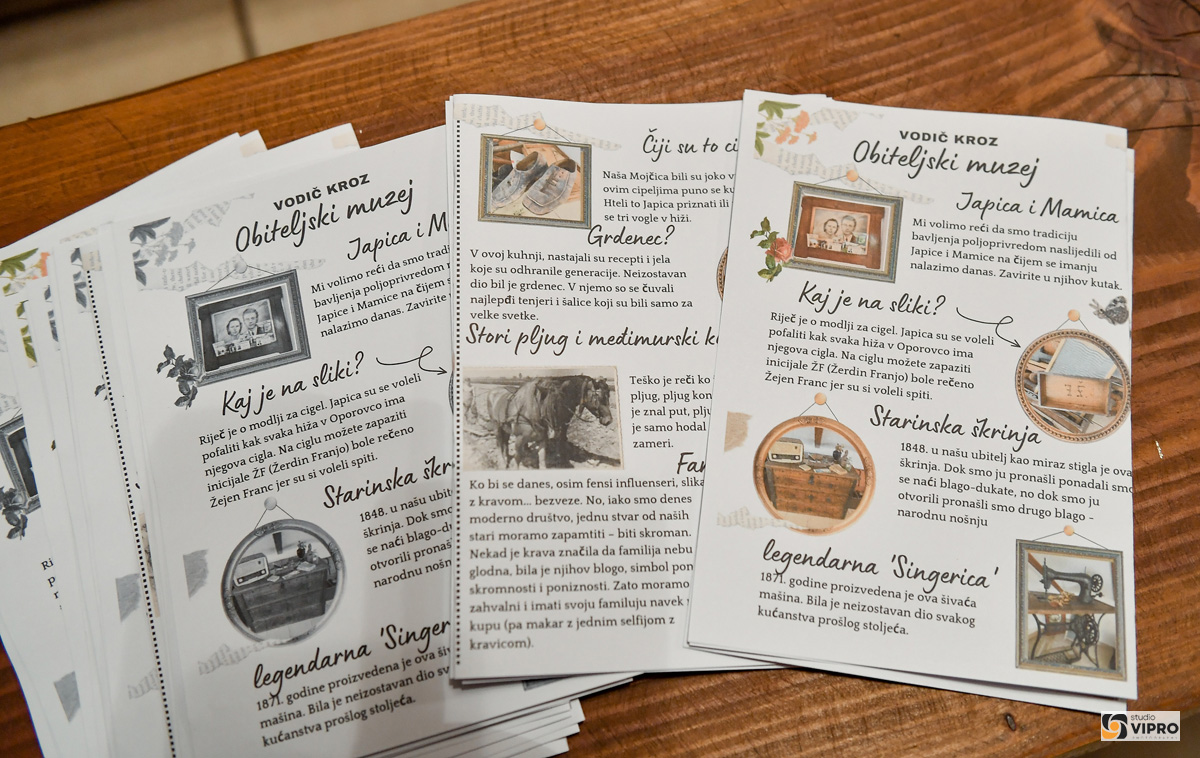 VODIČ KROZ
Obiteljski muzej
Japica i M
Mi volimo reći da smo tradiciju
bavljenja poljoprivredom
Japice i Mamice na čijem
nalazimo danas. Zavirite
Kaj je na sliki?
Riječ je o modlji za cigel. Japica su se voleli
pofaliti kak svaka hiža v Oporovco ima
njegova cigla. Na ciglu možete zapaziti
inicijale ŽF (Žerdin Franjo) bole rečeno
Žejen Franc jer su si voleli spiti.
Starinska škr
1848. u našu ubit
škrinja. Dok smo
se naći blago-duk
otvorili pronašl
narodnu nošnj
legendarna 'Singer
1871. godine proizvedena je ova ši
mašina. Bila je neizostavan dio sv
kućanstva prošlog stoljeća.
Čiji su to ci
Naša Mojčica bili su joko v
ovim cipeljima puno se ku
Hteli to Japica priznati ili
se tri vogle v hiži.
Grdenec?
V ovoj kuhnji, nastajali su recepti i jela
koje su odhranile generacije. Neizostavan
dio bil je grdenec. V njemo so se čuvali
najlepši tenjeri i šalice koji su bili samo za
velke svetke.
Stori pljug i međimurski k
Teško je reči ko
pljug, pljug kon
je znal put, plju
je samo hodal
zameri.
Fam
Ko bi se danes, osim fensi influenseri, slika
z kravom... bezveze. No, iako smo denes
moderno društvo, jednu stvar od naših
stari moramo zapamtiti – biti skroman.
Nekad je krava značila da familija nebu
glodna, bila je njihov blogo, simbol pon
skromnosti i poniznosti. Zato moramo
zahvalni i imati svoju familuju navek
kupu (pa makar z jednim selfijom z
kravicom).
VODIČ KROZ
Obiteljski muzej
Japica i Mamica
Mi volimo reći da smo tradiciju
bavljenja poljoprivredom naslijedili od
Japice i Mamice na čijem se imanju
nalazimo danas. Zavirite u njihov kutak.
Kaj je na sliki?
Riječ je o modlji za cigel. Japica su se voleli
pofaliti kak svaka hiža v Oporovco ima
njegova cigla. Na ciglu možete zapaziti
inicijale ŽF (Žerdin Franjo) bole rečeno
Žejen Franc jer su si voleli spiti.
Starinska škrinja
1848. u našu ubitelj kao miraz stigla je ova
škrinja. Dok smo ju pronašli ponadali smo
se naći blago-dukate, no dok smo ju
otvorili pronašli smo drugo blago –
narodnu nošnju
legendarna 'Singerica'
1871. godine proizvedena je ova šivaća
mašina. Bila je neizostavan dio svakog
kućanstva prošlog stoljeća.
studio
VIPRO